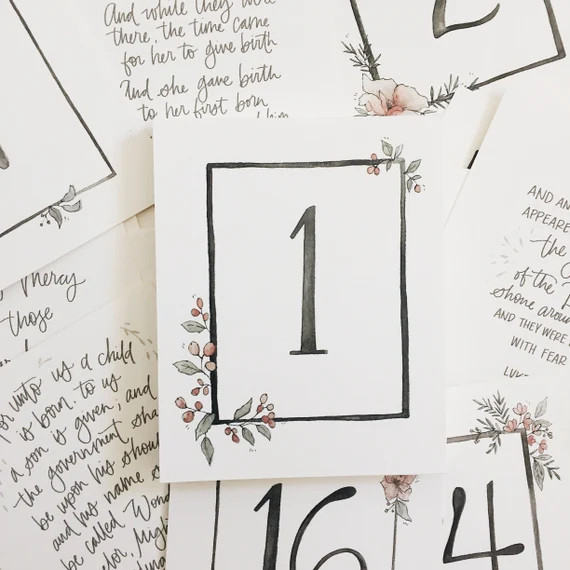 And while they were
there, the time came
for her to give birth
And she gave birth
to her first born
2
1
Mercy
those
For unto us a child
is born, to us
a son is given; and
the government sha
be upon his shou
and his name s
be called Won
AND AN
APPEARE
the
of the
shone arou
AND THEY WERE
WITH FEAR
LUK
16
4